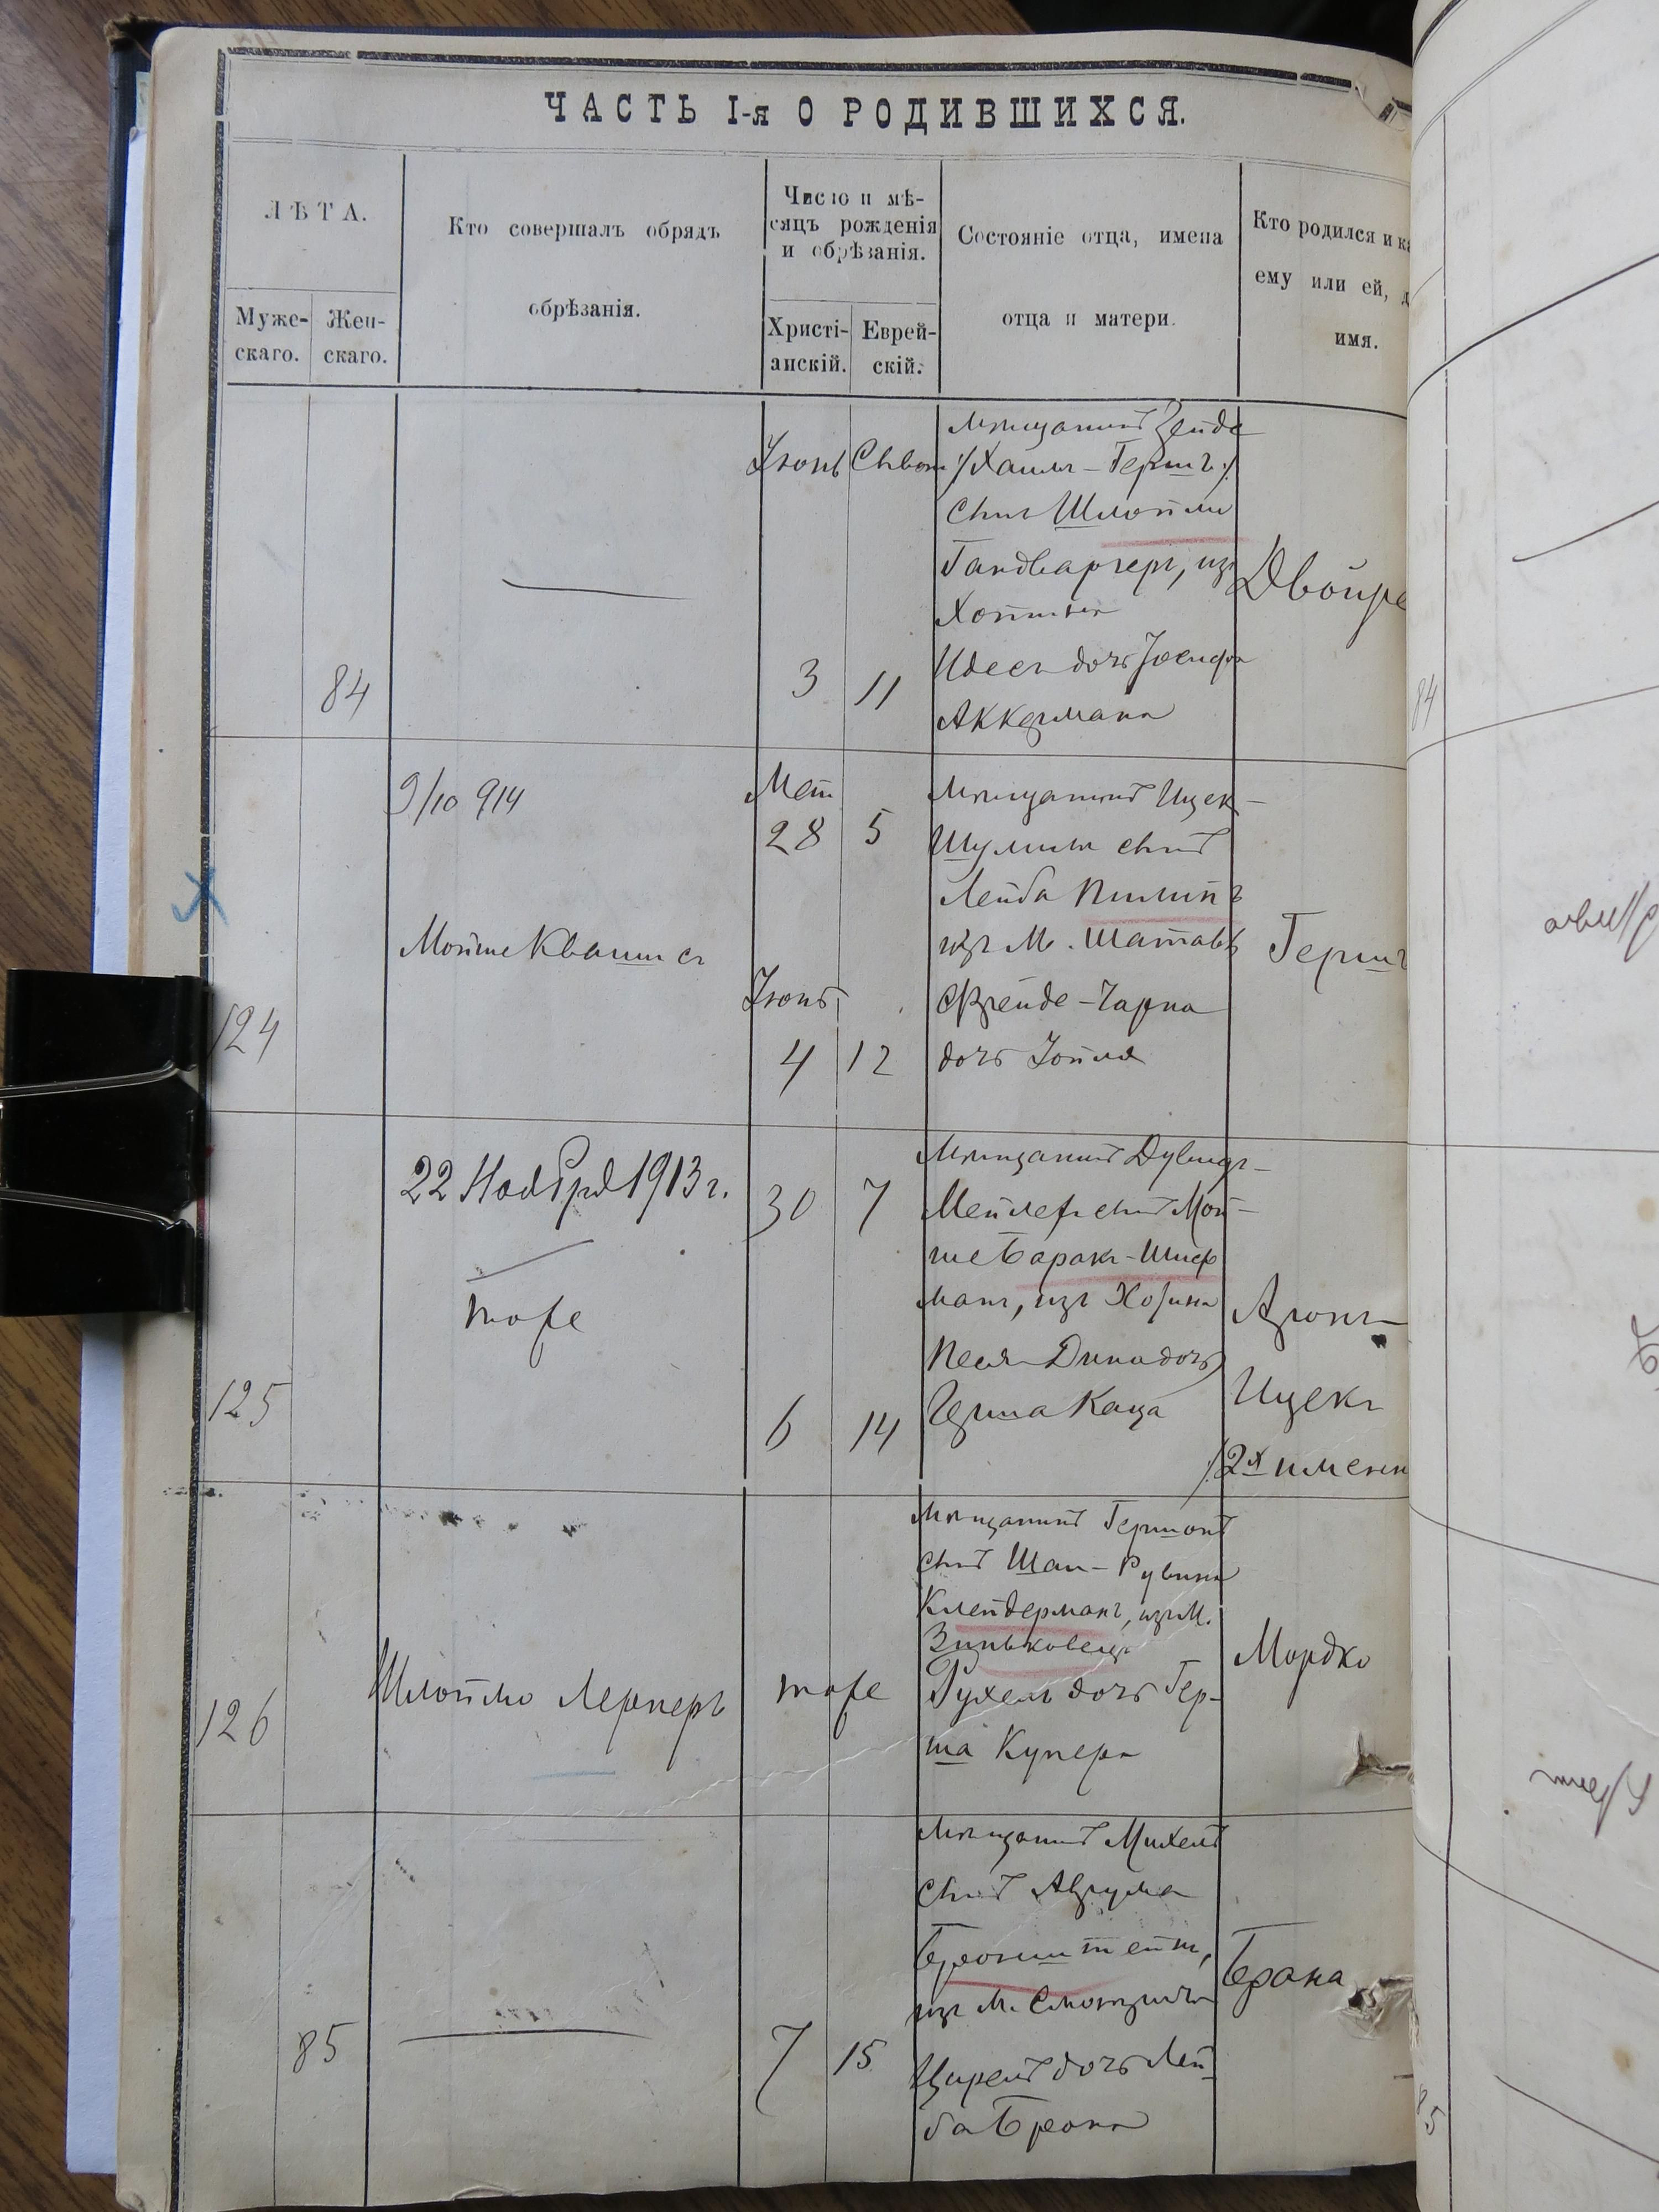 ЧАСТЬ I-я О РОДИВШИХСЯ.
ЛѢТА.
Муже-
скаго.
Жен-
скаго.
Кто совершалъ обрядъ
обрѣзанія.
Число и мѣ-
сяцъ рожденія
и обрѣзанія.
Христі-
анскій.
Еврей-
скій.
Состояніе отца, имена
отца и матери.
Кто родился и ка
ему или ей, д
имя.
84
Іюнь
3
11
мѣщанинъ Зейде
/Хаимъ-Гершъ/
сынъ Шлоймы
изъ
Хотина
Идесъ дочь Іосифа
Аккермана
Двойре
124
9/10 914
Мойше Квашисъ
Мая
28
5
Іюнь
4
12
Мѣщанинъ Ицек-
Шулимъ сынъ
Лейба Пилипъ
изъ М. Шатавъ
Фрейде-Чарна
дочь Іойля
Гершъ
125
22 Ноября 1913 г.
тоже
30
7
6
14
Мѣщанинъ Дувидъ-
Мейлехъ сынъ Мой-
ше Баракъ-Шиф
манъ, изъ Хотина
Песя-Дина дочь
Герша Каца
Аронъ-
Ицекъ
/2хъ имени
126
Шлоймо Лернеръ
тоже
мѣщанинъ Гершонъ
сынъ Шаи-Рувина
Клейдерманъ, изъ М.
Зиньковецъ
Рухель дочь Гер-
ша Купера
Мордко
85
7
15
мѣщанинъ Михель
сынъ Аврума
Бронштейнъ,
изъ М. Смотрича
Цирель дочь Лей-
ба Брона
Брана
84
85